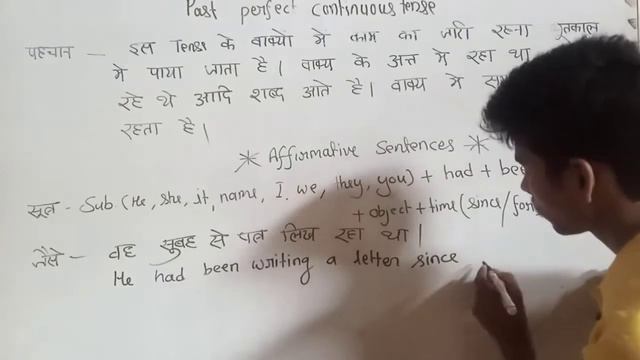 Past perfect continuous tense
पहचान - इस Tense के वाक्यों में काम का जारी रहना भूतकाल
में पाया जाता है। वाक्य के अन्त में रहा था
रहे थे आदि शब्द आते है। वाक्य में
रहता है।
* Affirmative Sentences *
सूत्र - Sub (He, she, it, name, I, we, they, you) + had +
+ object + time (since/for)
जैसे - वह सुबह से पत्र लिख रहा था।
He had been writing a letter since